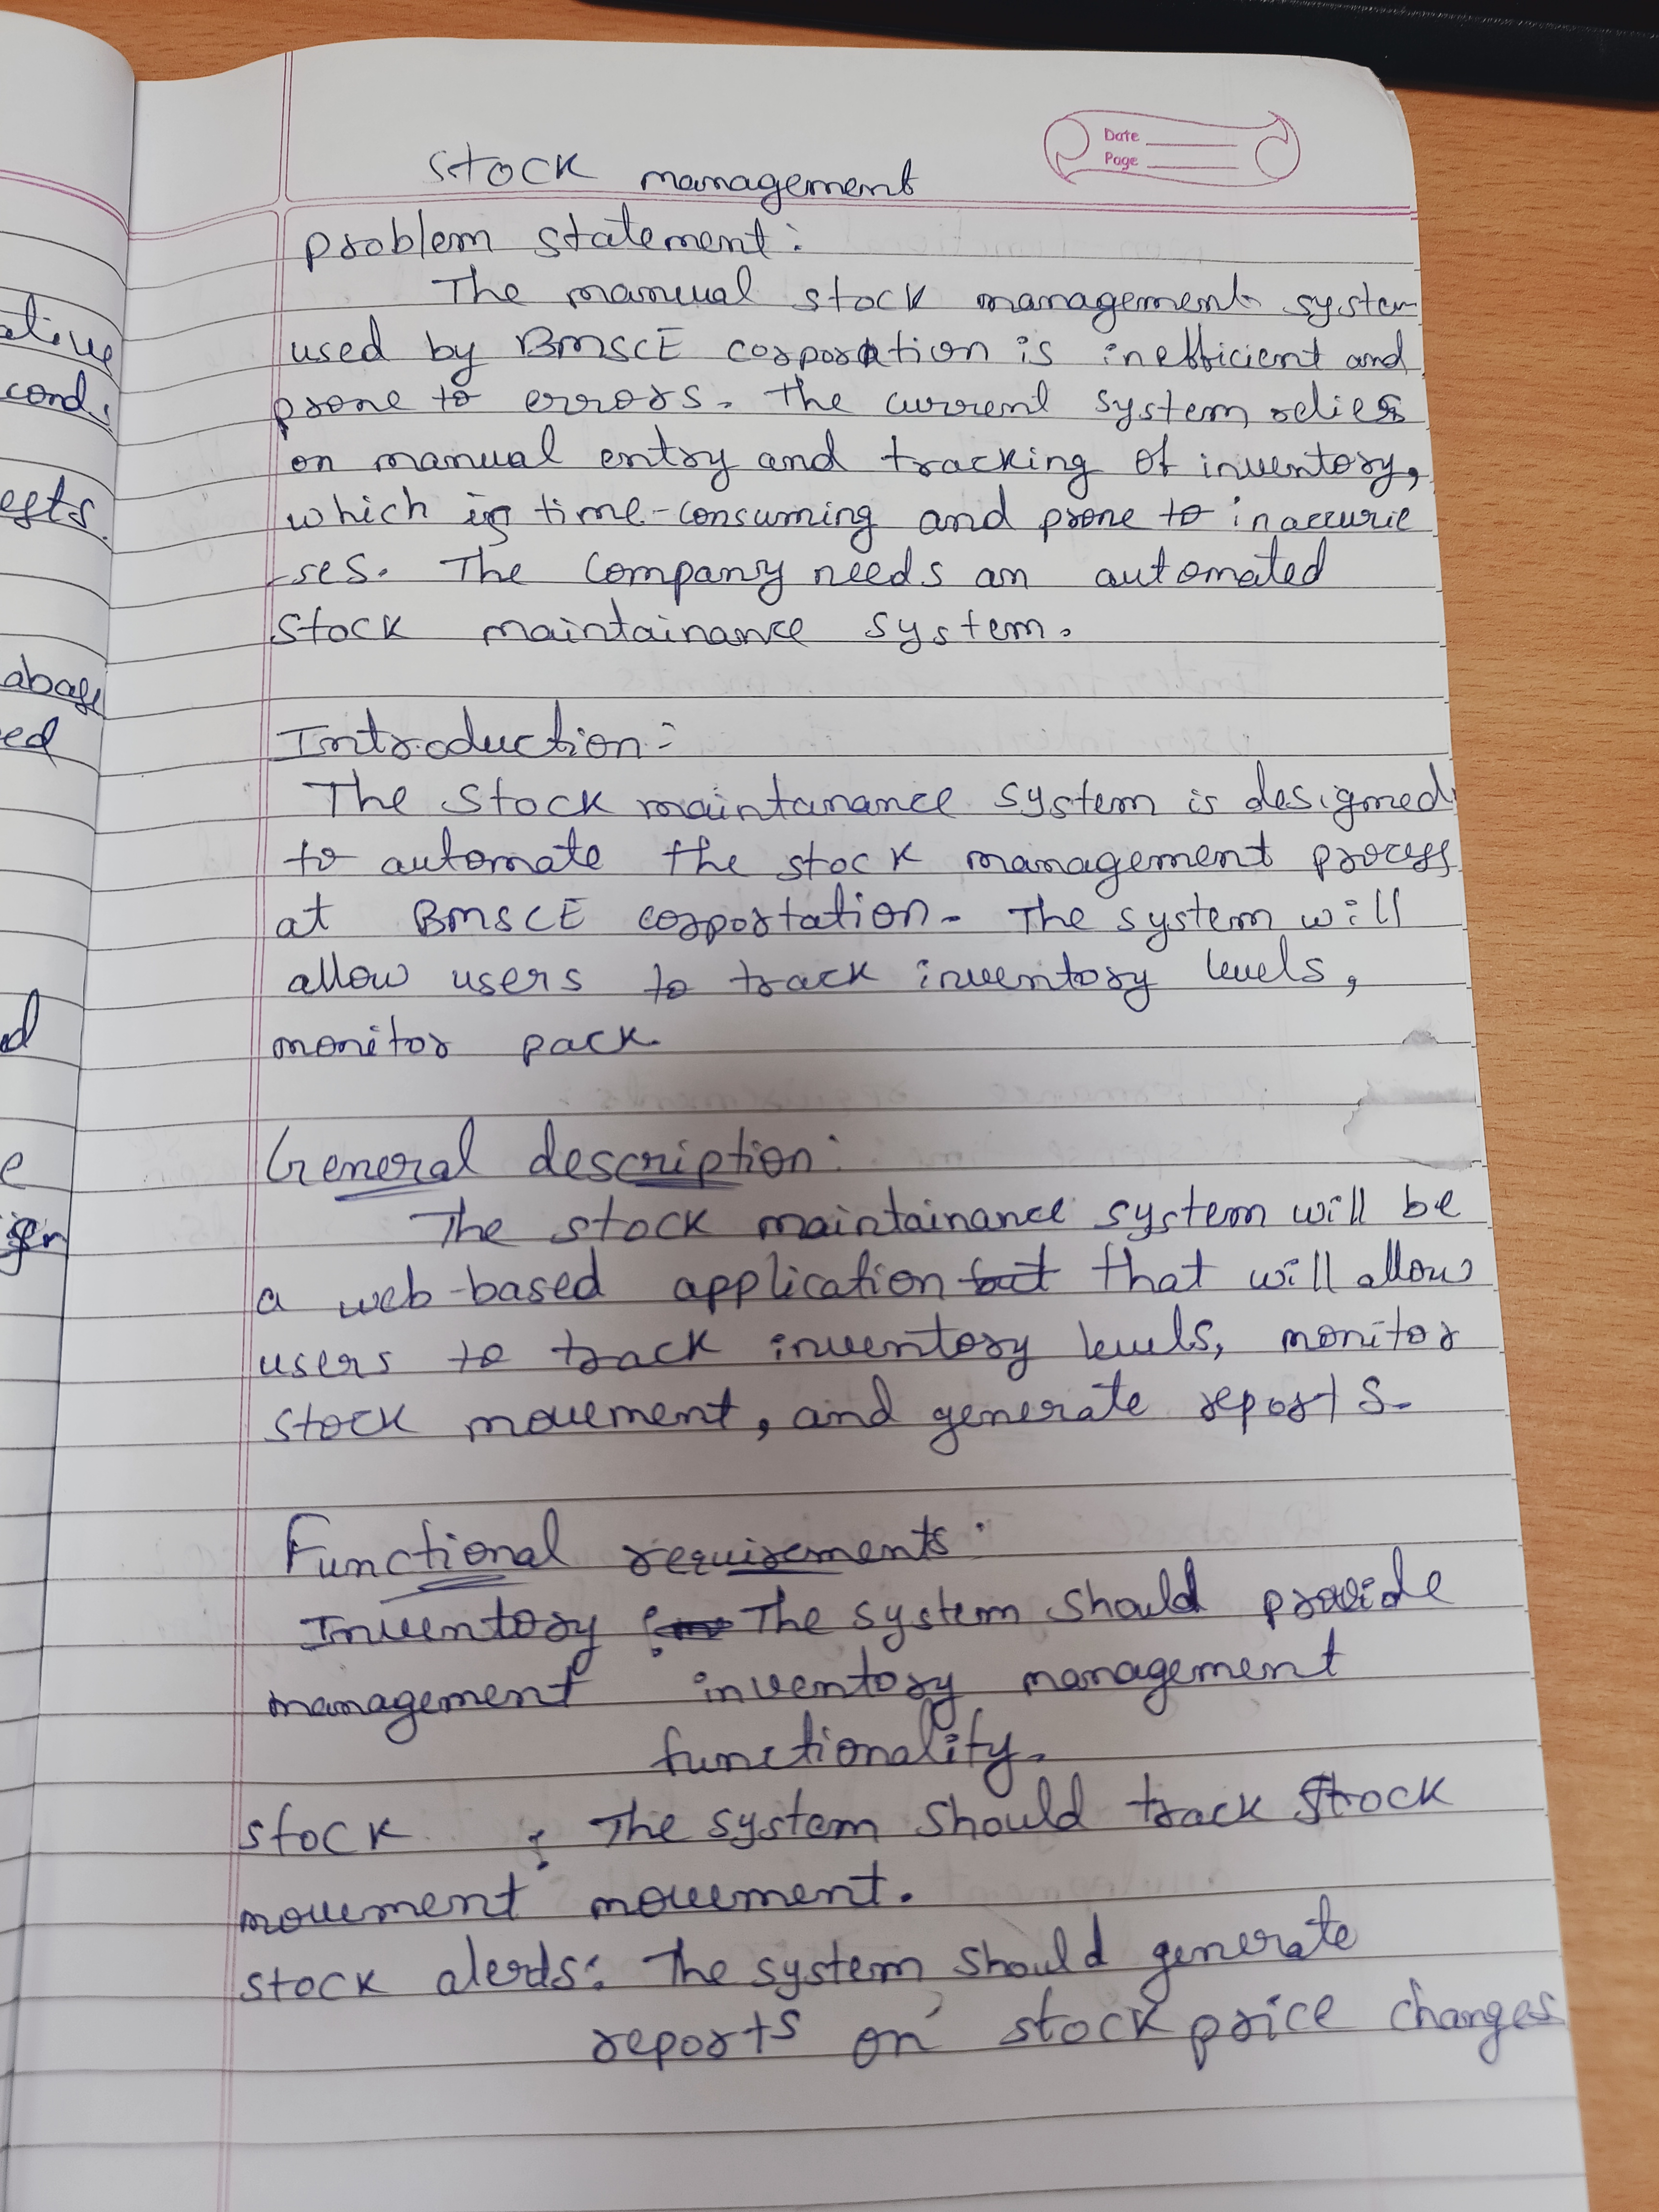 Date
Page
Stock management
problem statement:
The manual stock management system
used by BMSCE corporation is inefficient and
prone to errors. The current system relies
on manual entry and tracking of inventory,
which is time-consuming and prone to inaccurie
-ses. The company needs an automated
stock maintainance system.
Introduction:-
The stock maintanance system is designed
to automate the stock management process
at BMSCE corportation. The system will
allow users to track inventory levels,
monitor pack.
General description:
The stock maintainance system will be
a web-based application but that will allow
users to track inventory levels, monitor
stock movement, and generate reports.
Functional requirements:
Inventory : The system should provide
management inventory management
functionality.
stock : The system should track stock
movement movement.
stock alerds: The system should generate
reports on stock price changes
ative
cond.
ests.
abase
ed
d
e